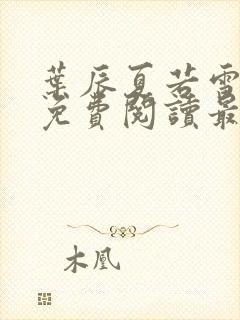 葉辰夏若雪
免費閱讀最
木凰